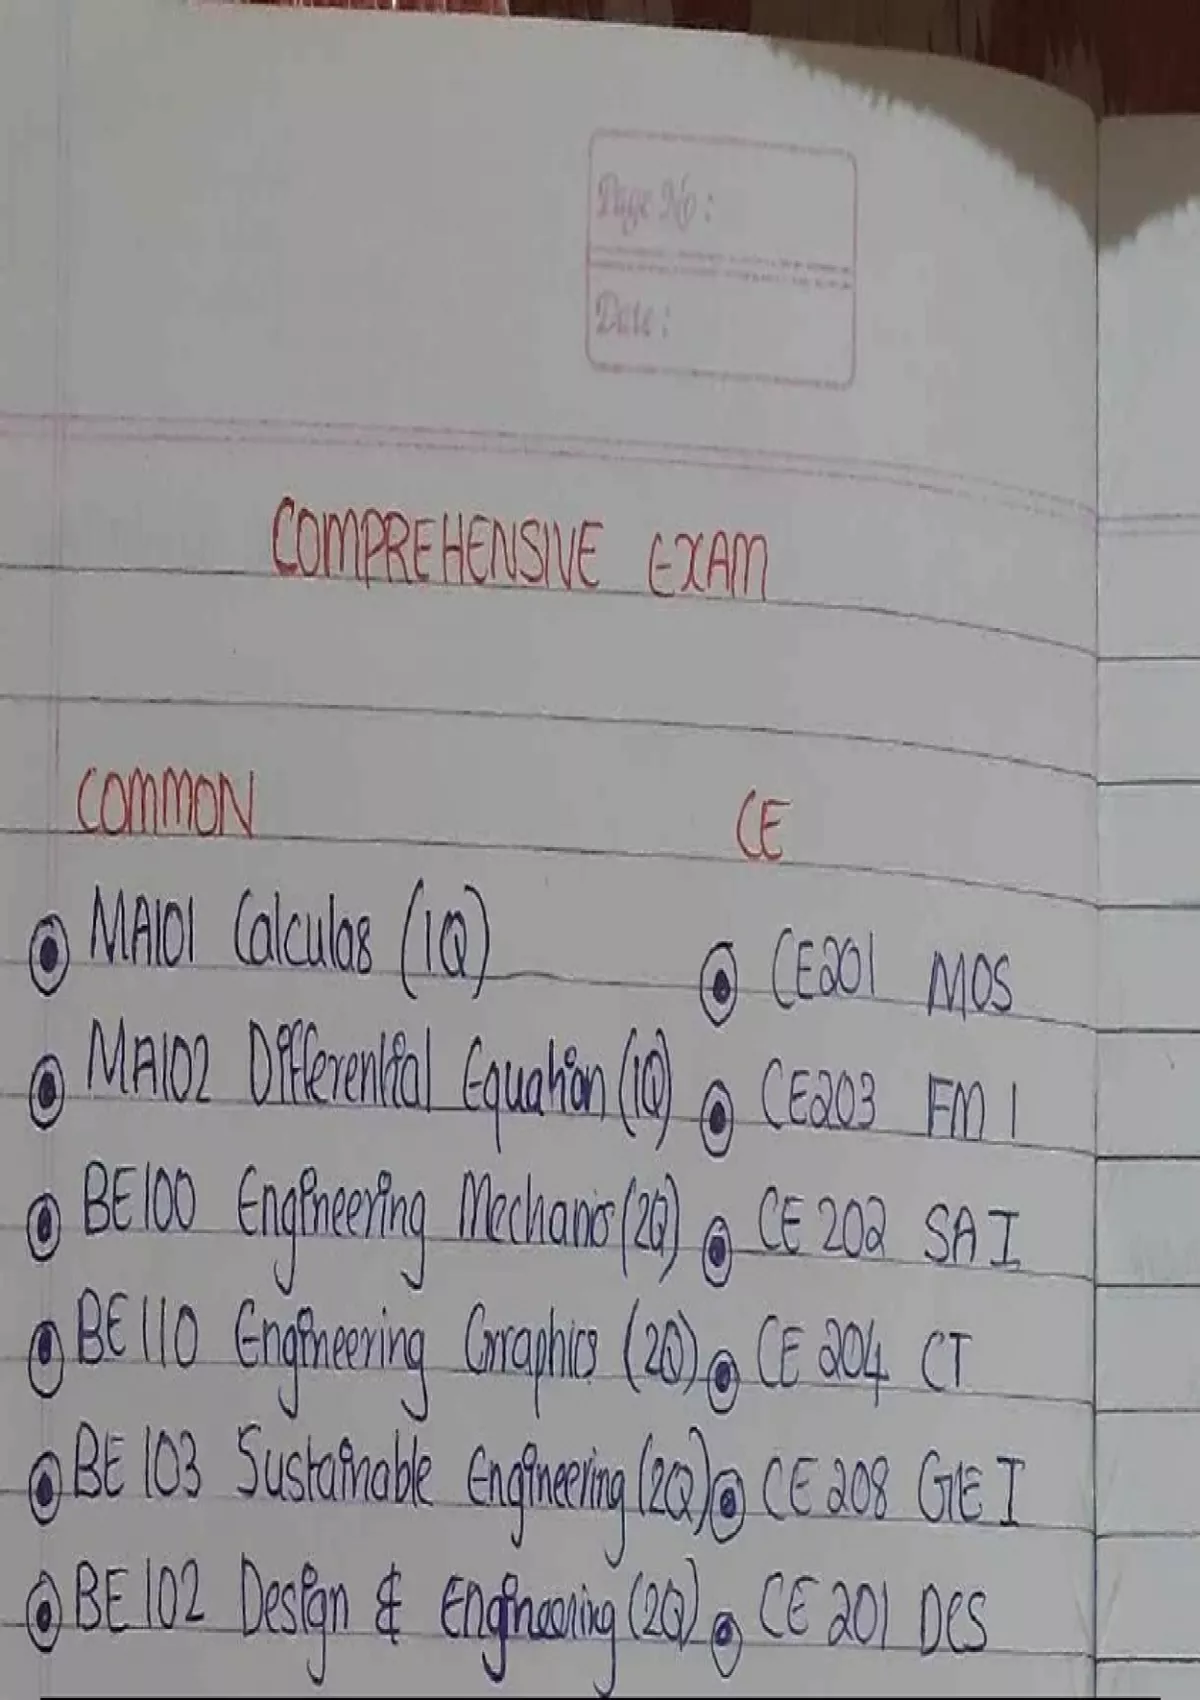 Page No :
Date :
COMPREHENSIVE EXAM
COMMON CE
MA101 Calculas (1Q) CE201 MOS
MA102 Differential Equation (1Q) CE203 FM 1
BE100 Engineering Mechanis (2Q) CE 202 SA I
BE 110 Engineering Graphics (2Q) CE 204 CT
BE 103 Sustainable Engineering (2Q) CE 208 GE I
BE 102 Design & Engineering (2Q) CE 201 DCS